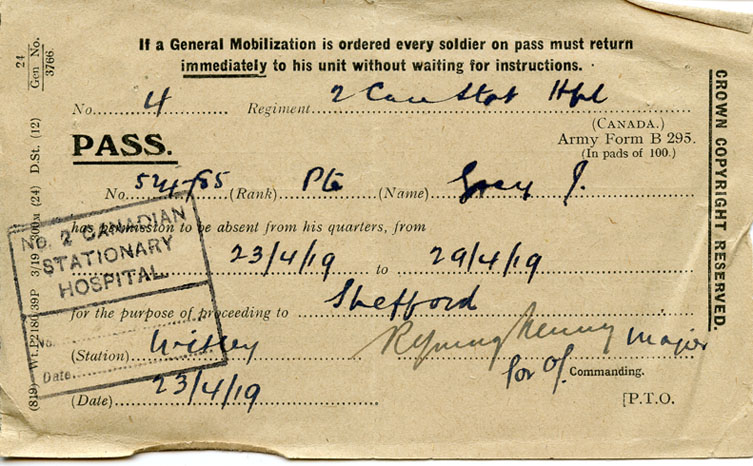 24
Gen No.
3766
If a General Mobilization is ordered every soldier on pass must return
immediately to his unit without waiting for instructions.
No. 4 Regiment 2 Can Stat Hpl
(CANADA.)
PASS.
Army Form B 295.
(In pads of 100.)
No. (Rank) Pte (Name) Gray J.
has permission to be absent from his quarters, from
23/4/19 to 29/4/19
for the purpose of proceeding to Shefford
(Station) Witley Major
for Of. Commanding.
(Date) 23/4/19 [P.T.O.
No. 2 CANADIAN
STATIONARY
HOSPITAL
No.
Date
(819) Wt.P2180/39P 3/19 300M (24) D.St. (12)
CROWN COPYRIGHT RESERVED.